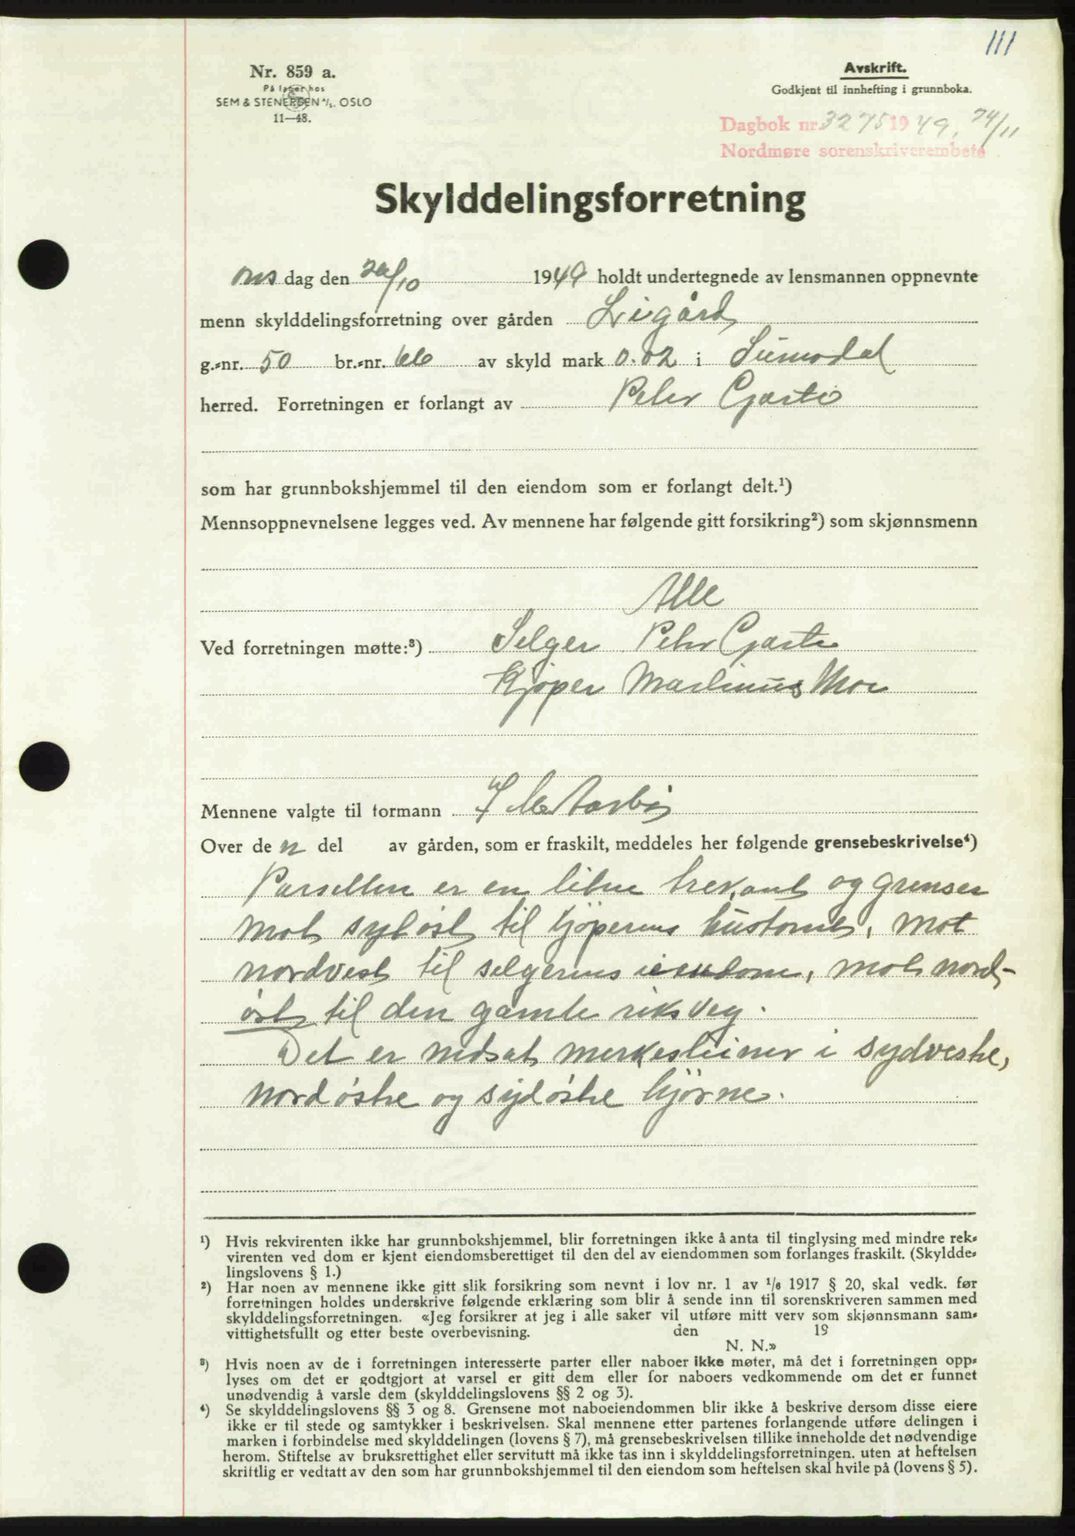 111
Nr. 859 a.
På lager hos
SEM & STENERSEN A/S. OSLO
11—48.
Avskrift.
Godkjent til innhefting i grunnboka.
Dagbok nr. 3275 1949, 24/11
Nordmøre sorenskriverembete
Skylddelingsforretning
ons dag den 26/10 1949 holdt undertegnede av lensmannen oppnevnte
menn skylddelingsforretning over gården Ligård,
g.-nr. 50 br.-nr. 66 av skyld mark 0.02 i Surnadal
herred. Forretningen er forlangt av Peter Gjærtø
som har grunnbokshjemmel til den eiendom som er forlangt delt.¹)
Mennsoppnevnelsene legges ved. Av mennene har følgende gitt forsikring²) som skjønnsmenn
Alle
Ved forretningen møtte:³) Selger Peter
Kjøper Martinus Moe
Mennene valgte til formann
Over de n del av gården, som er fraskilt, meddeles her følgende grensebeskrivelse⁴)
Parsellen er en liten trekant og grenser
mot sydøst til kjøperens hustomt, mot
nordvest til selgerens eiendom, mot nord-
øst til den gamle riksveg.
Det er nedsat merkesteiner i sydvestre,
nordøstre og sydøstre hjørne.
¹) Hvis rekvirenten ikke har grunnbokshjemmel, blir forretningen ikke å anta til tinglysing med mindre rek-
virenten ved dom er kjent eiendomsberettiget til den del av eiendommen som forlanges fraskilt. (Skyldde-
lingslovens § 1.)
²) Har noen av mennene ikke gitt slik forsikring som nevnt i lov nr. 1 av 1/6 1917 § 20, skal vedk. før
forretningen holdes underskrive følgende erklæring som blir å sende inn til sorenskriveren sammen med
skylddelingsforretningen. «Jeg forsikrer at jeg i alle saker vil utføre mitt verv som skjønnsmann sam-
vittighetsfullt og etter beste overbevisning. den 19
N. N.»
³) Hvis noen av de i forretningen interesserte parter eller naboer ikke møter, må det i forretningen opp-
lyses om det er godtgjort at varsel er gitt dem eller for naboers vedkommende om det er funnet
unødvendig å varsle dem (skylddelingslovens §§ 2 og 3).
⁴) Se skylddelingslovens §§ 3 og 8. Grensene mot naboeiendommen blir ikke å beskrive dersom disse eiere
ikke er til stede og samtykker i beskrivelsen. Skal mennene etter partenes forlangende utføre delingen i
marken i forbindelse med skylddelingen (lovens § 7), må grensebeskrivelsen tillike inneholde det nødvendige
herom. Stiftelse av bruksrettighet eller servitutt må ikke tas inn i skylddelingsforretningen. uten at heftelsen
skriftlig er vedtatt av den som har grunnbokshjemmel til den eiendom som heftelsen skal hvile på (lovens § 5).